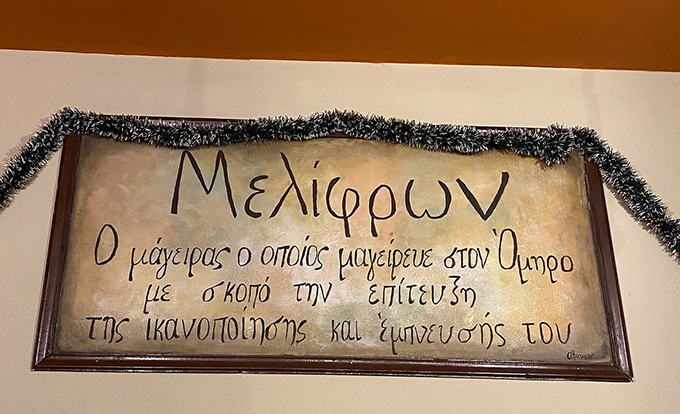 Μελίφρων
Ο μάγειρας ο οποίος μαγείρευε στον Όμηρο
με σκοπό την επίτευξη
της ικανοποίησης και έμπνευσής του